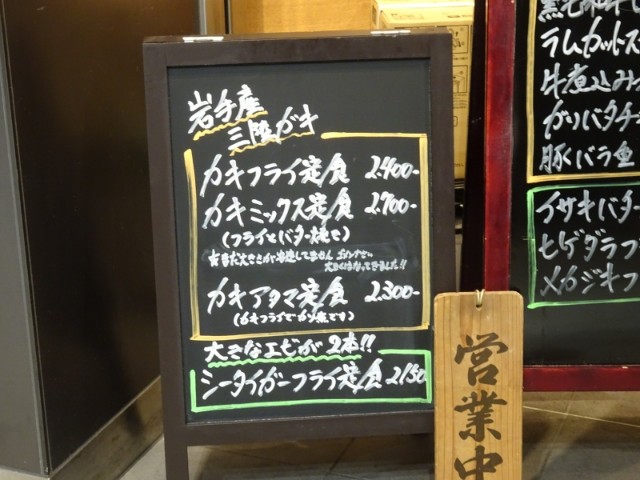 岩手産
三陸ガキ
カキフライ定食 2.400-
カキミックス定食 2.700-
(フライとバター焼き)
カキアタマ定食 2.300-
(カキフライでカツ煮です)
大きなエビが2本!!
シータイガーフライ定食 2150
営業中
ラムカットス
牛煮込み
ガリバタチ
豚バラ重
イサキバター
ヒゲダラフ
メカジキフ